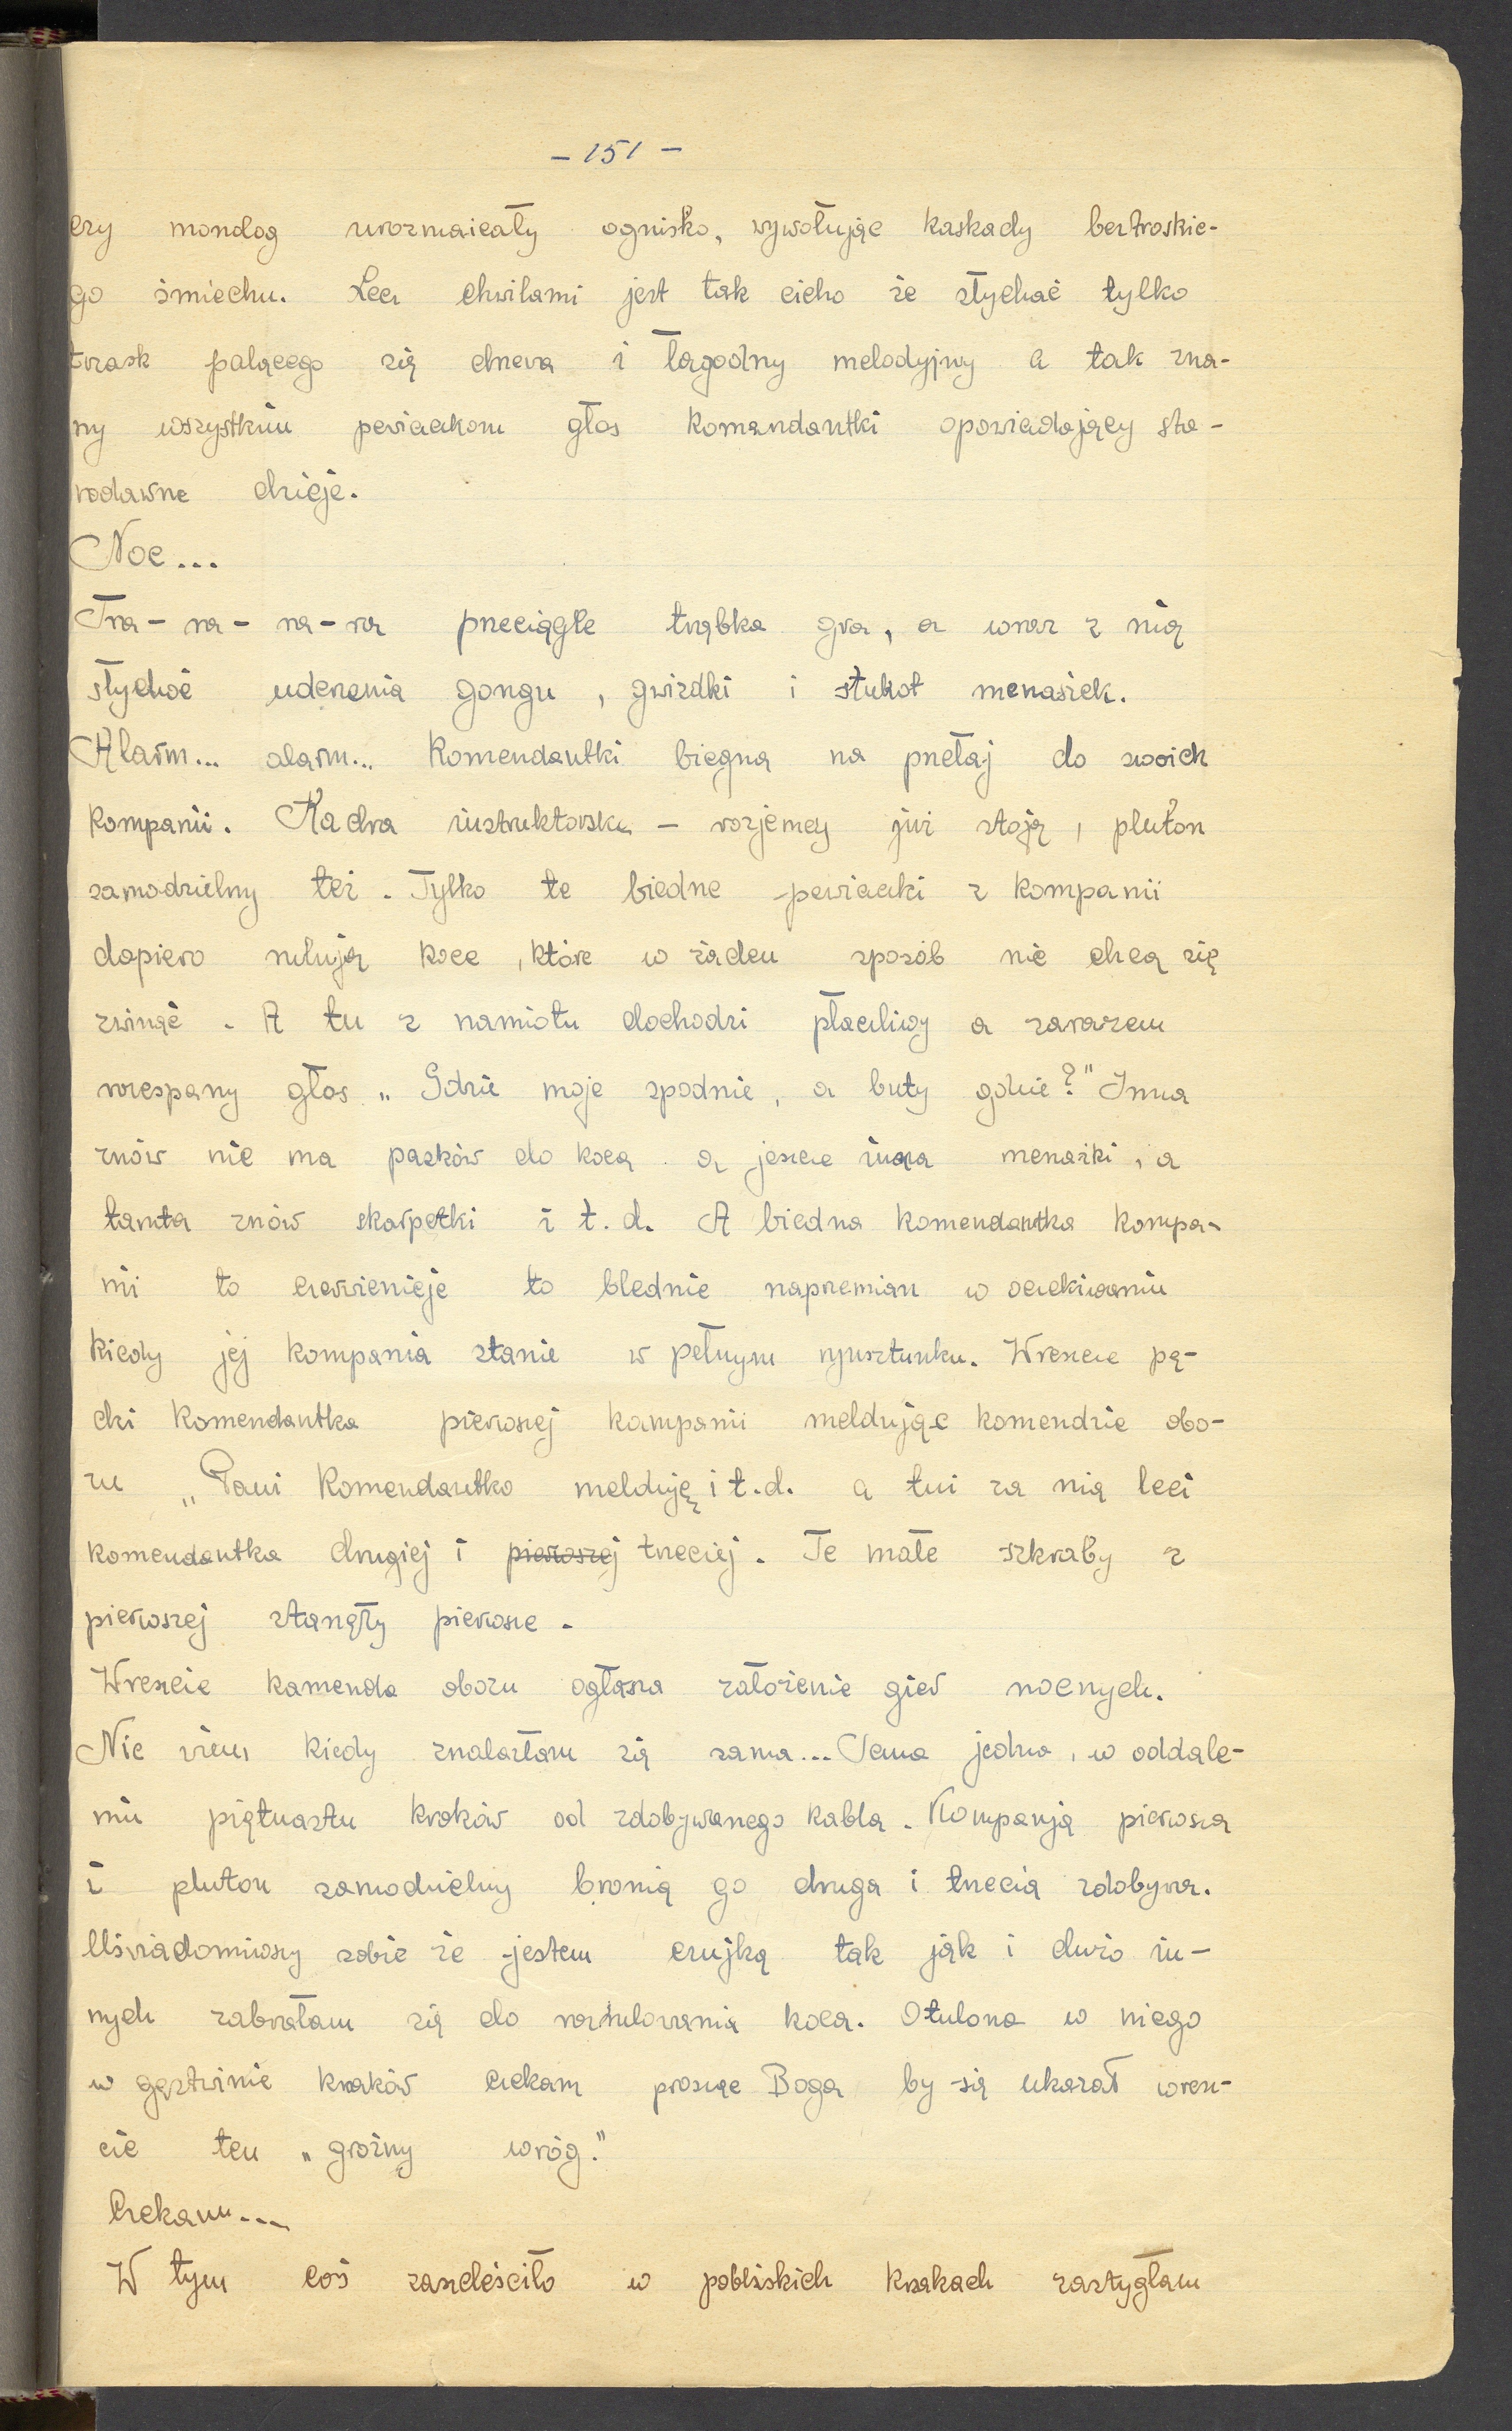 - 151 -
czy monolog urozmaicały ognisko, wywołując kaskady beztroskie-
go śmiechu. Lecz chwilami jest tak cicho że słychać tylko
trzask palącego się drzewa i łagodny melodyjny a tak zna-
ny wszystkim pewiaczkom głos Komandantki opowiadający sta-
rodawne dzieje.
Noc...
Tra-ra-ra-ra przeciągle trąbka gra, a wraz z nią
słychać uderzenia gongu, gwizdki i stukot menażek.
Alarm... alarm... Komendantki biegną na przełaj do swoich
kompanii. Kadra instruktorska - rozjemcy już stoją, pluton
samodzielny też. Tylko te biedne pewiaczki z kompanii
dopiero rulują koce, które w żaden sposób nie chcą się
zwinąć. A tu z namiotu dochodzi płaczliwy a zarazem
rozespany głos „Gdzie moje spodnie, a buty gdzie?" Inna
znów nie ma pasków do koca a jeszcze inna menażki, a
tamta znów skarpetki i t.d. A biedna komendantka kompa-
ni to czerwienieje to blednie naprzemian w oczekiwaniu
kiedy jej kompania stanie w pełnym rynsztunku. Wreszcie pę-
dzi Komendantka pierwszej kompanii meldując komendzie obo-
zu „Pani Komendantko melduję i t.d. a tuż za nią leci
komendantka drugiej i pierwszej trzeciej. Te małe szkraby z
pierwszej stanęły pierwsze.
Wreszcie komenda obozu ogłasza założenie gier nocnych.
Nie wiem kiedy znalazłam się sama... Sama jedna, w oddale-
niu piętnastu kroków od zdobywanego kabla. Kompanją pierwsza
i pluton samodzielny bronią go druga i trzecia zdobywa.
Uświadomiwszy sobie że jestem czujką tak jak i dużo in-
nych zabrałam się do rozrulowania koca. Otulona w niego
w gęstwinie krzaków czekam prosząc Boga by się ukazał wresz-
cie ten „groźny wróg."
Czekam...
W tym coś zaszeleściło w pobliskich krzakach zastygłam